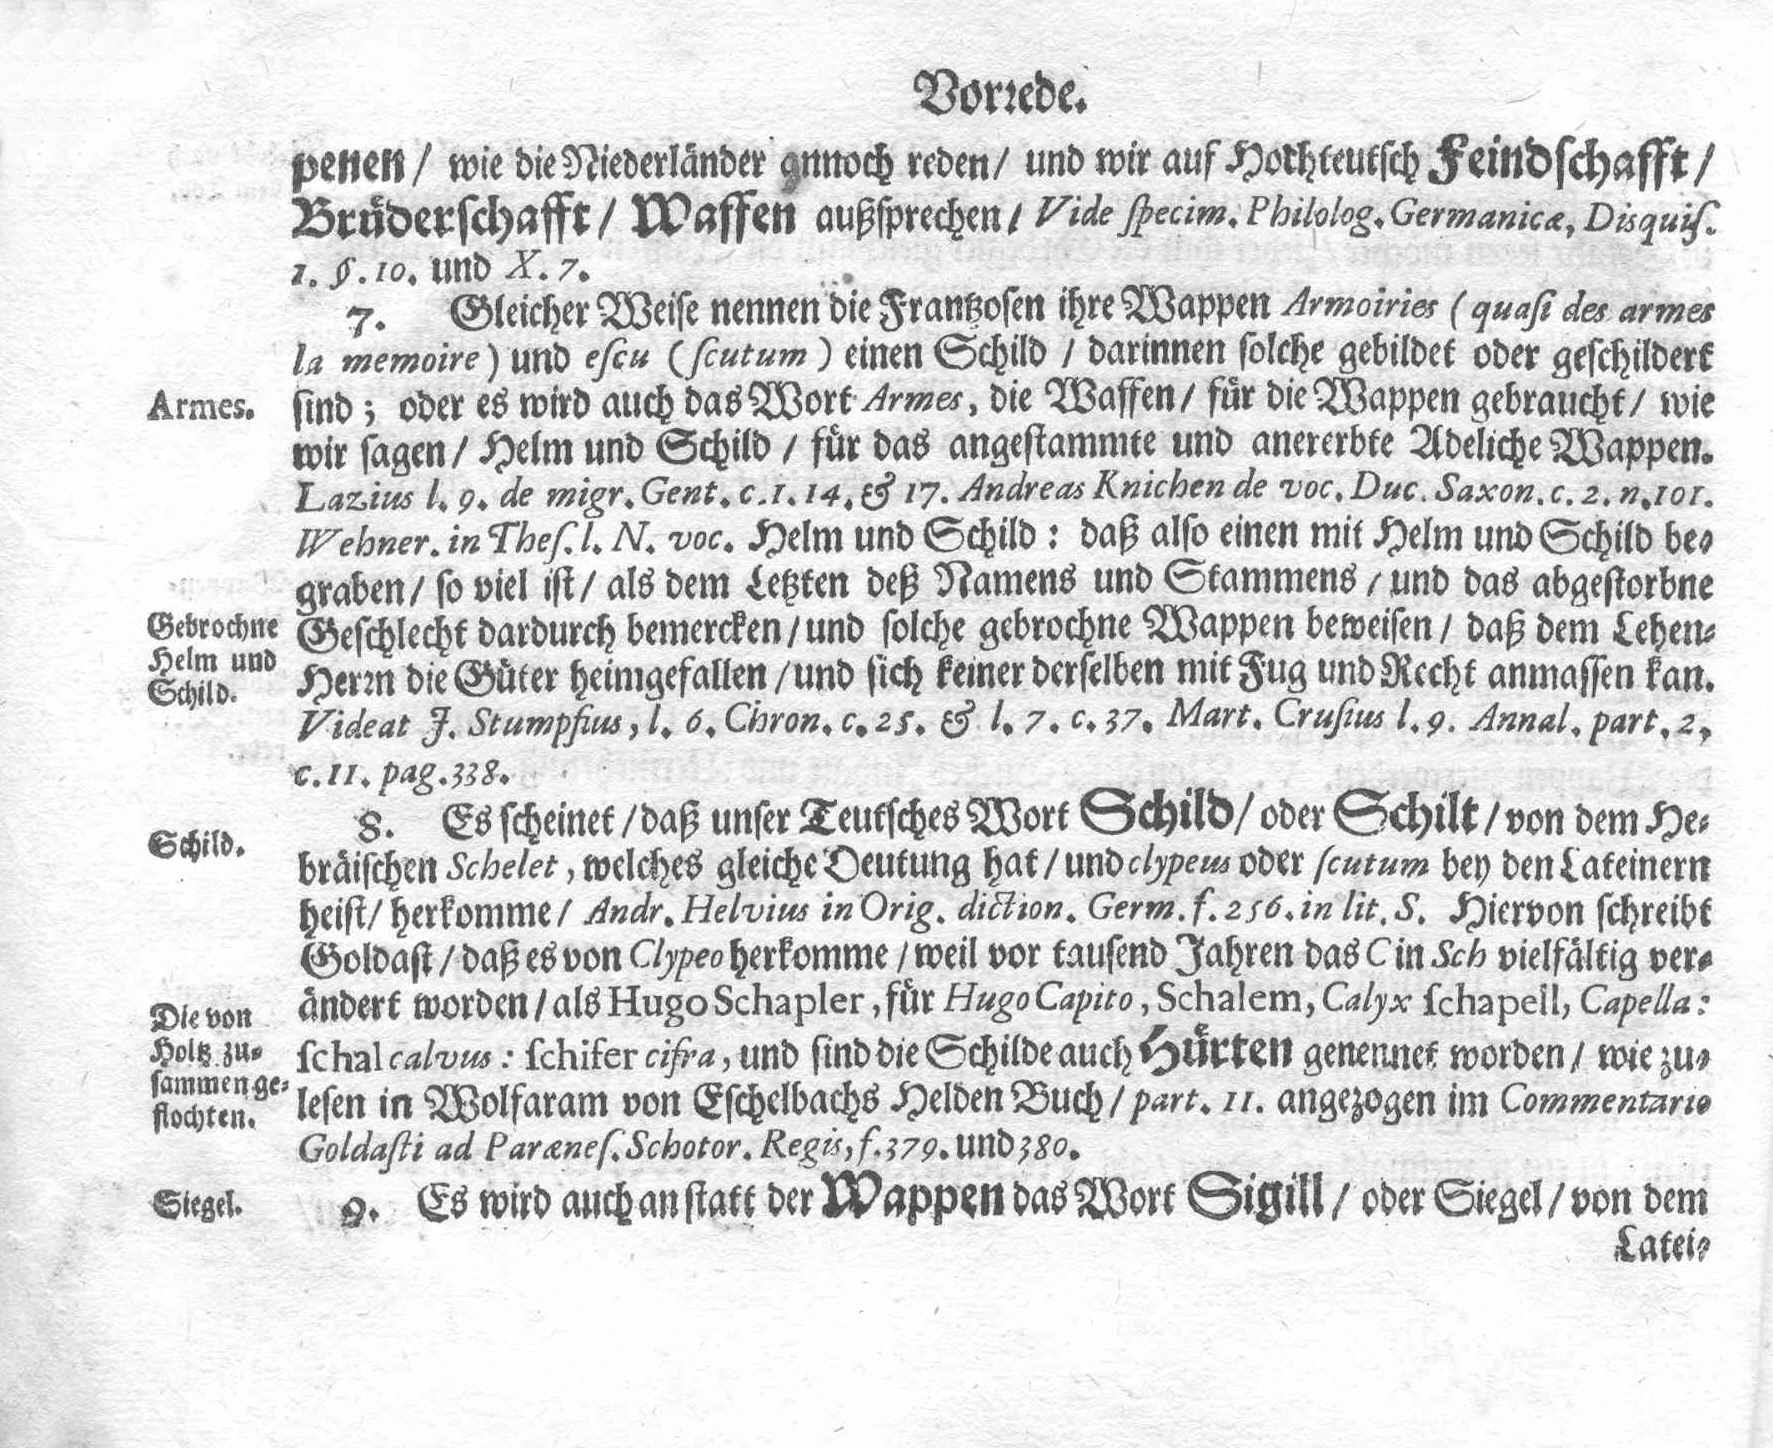 Vorrede.
penen / wie die Niederländer annoch reden / und wir auf Hochteutsch Feindschafft /
Brüderschafft / Waffen außsprechen / Vide specim. Philolog. Germanicæ, Disquis.
1. §. 10. und X. 7.
7. Gleicher Weise nennen die Frantzosen ihre Wappen Armoiries ( quasi des armes
la memoire ) und escu ( scutum ) einen Schild / darinnen solche gebildet oder geschildert
Armes.
sind ; oder es wird auch das Wort Armes, die Waffen / für die Wappen gebraucht / wie
wir sagen / Helm und Schild / für das angestammte und anererbte Adeliche Wappen.
Lazius l. 9. de migr. Gent. c. 1. 14. & 17. Andreas Knichen de voc. Duc. Saxon. c. 2. n. 101.
Wehner. in Thes. l. N. voc. Helm und Schild : daß also einen mit Helm und Schild be-
graben / so viel ist / als dem Letzten deß Namens und Stammens / und das abgestorbne
Gebrochne
Helm und
Schild.
Geschlecht dardurch bemercken / und solche gebrochne Wappen beweisen / daß dem Lehen-
Herrn die Güter heimgefallen / und sich keiner derselben mit Fug und Recht anmassen kan.
Videat J. Stumpfius, l. 6. Chron. c. 25. & l. 7. c. 37. Mart. Crusius l. 9. Annal. part. 2,
c. 11. pag. 338.
Schild.
8. Es scheinet / daß unser Teutsches Wort Schild / oder Schilt / von dem He-
bräischen Schelet, welches gleiche Deutung hat / und clypeus oder scutum bey den Lateinern
heist / herkomme / Andr. Helvius in Orig. diction. Germ. f. 256. in lit. S. Hiervon schreibt
Goldast / daß es von Clypeo herkomme / weil vor tausend Jahren das C in Sch vielfältig ver-
Die von
Holtz zu-
sammen ge-
flochten.
ändert worden / als Hugo Schapler, für Hugo Capito, Schalem, Calyx schapell, Capella :
schal calvus : schifer cifra, und sind die Schilde auch Hürten genennet worden / wie zu-
lesen in Wolfaram von Eschelbachs Helden Buch / part. 11. angezogen im Commentario
Goldasti ad Parænes. Schotor. Regis, f. 379. und 380.
Siegel.
9. Es wird auch an statt der Wappen das Wort Sigill / oder Siegel / von dem
Latei-